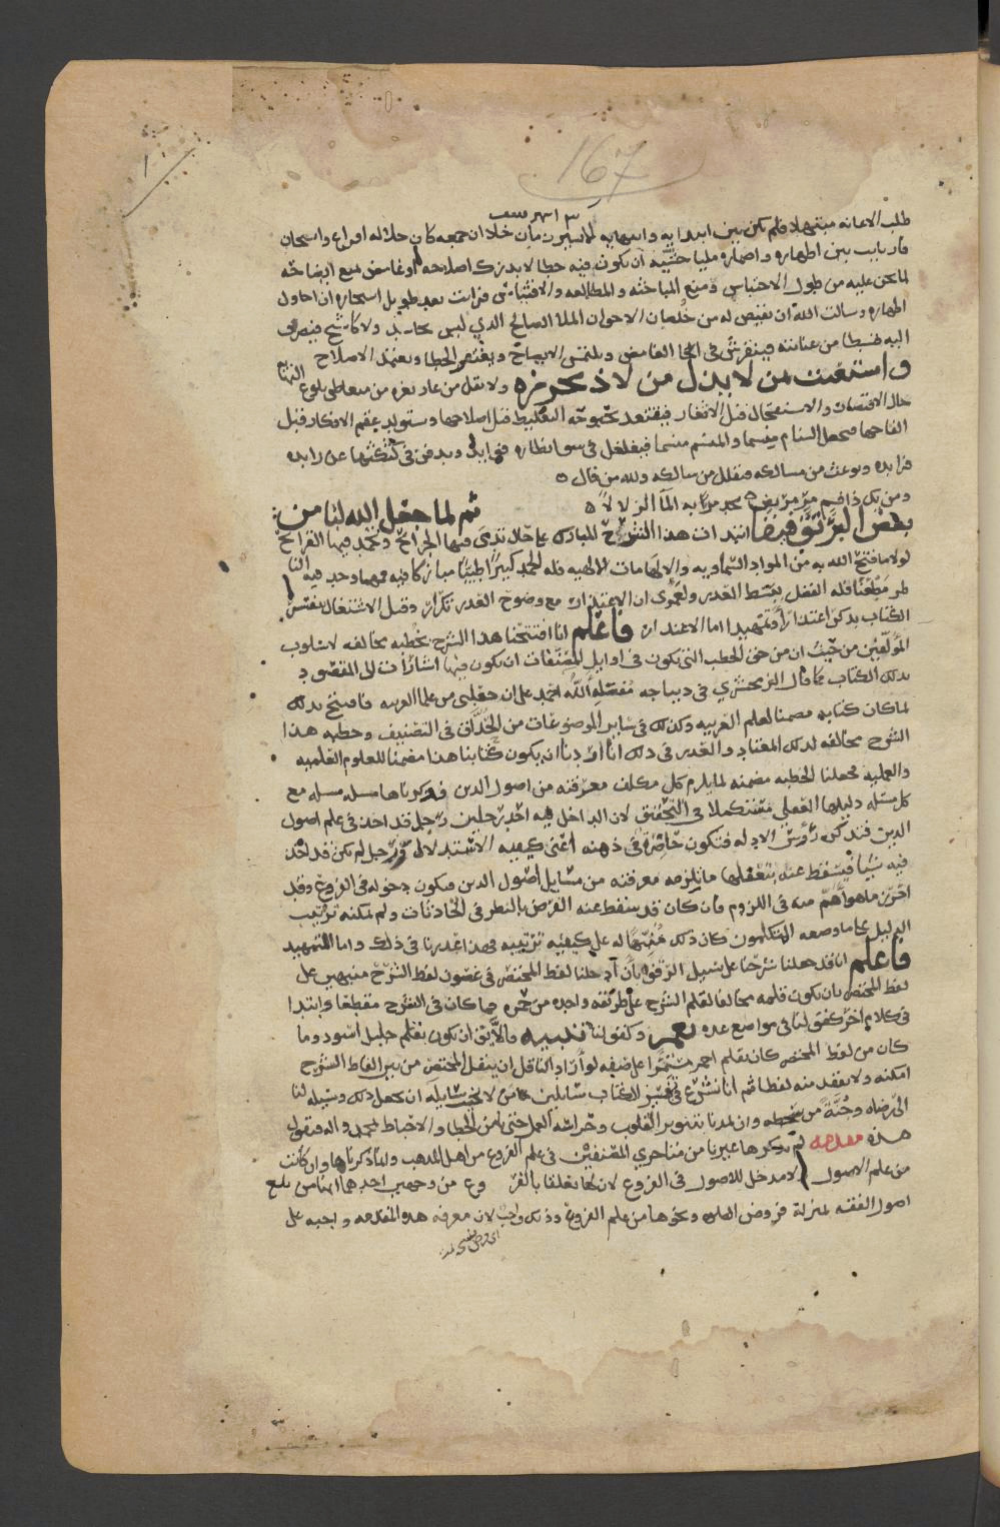 167
١
طلب الاعانه مبتهلا فلم يكن بين ابتدايه وانتهايه الا سير ت مان خلا ان جمعه كان خلاله
فارباب بين اظهاره واضماره مليا خشية ان يكون فيه خطا لا يدرك اصلاحه او غامض منع ايضاحه
لما نحن عليه من طول الاحتباس ومنع المباحثه والمطالعه والاقتباس فرايت بعد طويل استخاره ان احاول
اظهاره وسالت الله ان يقيض له من خلصان الاخوان الملا الصالح الذي ليس بحاسد ولا كاشح فيصرف
اليه قسطا من عنايته فينقر في الغامض ويلتمس الايضاح ويقتفي الخطا ويعتمد الاصلاح
واستعنت بمن لا يذل من لاذ بحرزه ولا يقل من عاد بعزه من تعاطي بلوغ النهايه
حال الاقتصار والاستعجال قبل الاثغار فيقتعد
القاحها فيجعل السنام منسما والمنسم سنما فيغلغل في سو انظاره فوايده ويدفن في
فرايده ويوعث من مسالكه فيقلل من سالكه ولله من قال ٥
ومن يك ذا فم مر مريض ٥ يجد مرا به الماء الزلالا ٥ ثم لما جعل الله لنا من
بعض البر نوفيضا انتهد ات هذا الشرح المبارك على حال تدمى فيها الجرائح وتخمد فيها القرائح
لولا ما فتح الله به من المواد السماويه والالهامات الالهيه فله الحمد كثيرا طيبا مباركا فيه فمهما وجد فيه الناظر
مطعنا فله الفضل ببسط العذر ولعمري ان الاعتذار مع وضوح العذر تكرار وقبل الاشتغال بتفسير
الكتاب يذكر اعتذارا وتمهيدا اما الاعتذار فاعلم انا افتتحنا هذا الشرح بخطبه مخالفه لاسلوب
المؤلفين من حيث ان من حق الخطب التي تكون في اوايل المصنفات ان يكون فيها اشارات الى المقصود
بذلك الكتاب كما قال الزمخشري في ديباجه مفصله الله احمد على ان جعلني من علما العربيه فافتتح بذلك
لما كان كتابه مضمنا لعلم العربيه وكذلك في ساير الموضوعات من الحذاق في التصنيف وخطبه هذا
الشرح مخالفه لذلك المعتاد والعذر في ذلك انا اردنا ان يكون كتابنا هذا مضمنا للعلوم العلميه
والعمليه فجعلنا الخطبه مضمنه لما يلزم كل مكلف معرفته من اصول الدين فذكرناها مسله مسله مع
كل مسله دليلها العقلي مستكملا في التحقيق لان الداخل فيه احد رجلين رجل قد اخذ في علم اصول
الدين فتذكره رؤس الادله فتكون حاضرة في ذهنه اعني كيفيه الاستدلال ورجل لم يكن قد اخذ
فيه شيا فيسقط عنه بتعقلها ما يلزمه معرفته من مسايل اصول الدين فيكون دخوله في الفروع وقد
احرز ما هو اهم منه في اللزوم فان كان قد سقط عنه الفرض بالنظر في الحادثات ولم يمكنه ترتيب
الدليل على ما وضعه المتكلمون كان ذلك منبها له على كيفيه ترتيبه فهذا عذرنا في ذلك واما التمهيد
فاعلم انا قد جعلنا شرحنا على سبيل الزقوا بان ادخلنا لفظ المختصر في غضون لفظ الشرح منبهين على
لفظ المختصر بان يكون قلمه مخالفا لقلم الشرح على طريقه واحده من حمره فما كان في الشرح مقطعا وابتدا
في كلام اخر كقولنا في مواضع عده نعم وكقولنا تنبيه فالاليق ان يكون بقلم جليل اسود وما
كان من لفظ المختصر كان بقلم احمر مستمرا على ضيفه لو اراد الناقل ان ينقل المختصر من بين الفاظ الشرح
امكنه ولا يفقد منه لفظا ثم انا نشرع في تفسير الكتاب سائلين من لا يخيب سايله ان يجعل ذلك وسيله لنا
الى رضاه وجنة من سخطه وان يمدنا بتنوير القلوب وحراسه العمل حتى نامن الخطا والاحباط بمحمد واله فنقول
هذه مقدمه لم يذكرها غيرنا من متاخري المصنفين في علم الفروع من اهل المذهب ولنا ذكرناها وان كانت
من علم الاصول لا مدخل للاصول في الفروع لان لها تعلقا بالفروع من وجهين احدهما ان
اصول الفقه بمنزلة فروض الصلوه ونحوها من علم الفروع وذلك واجب لان معرفه هذه المقدمه واجبه على